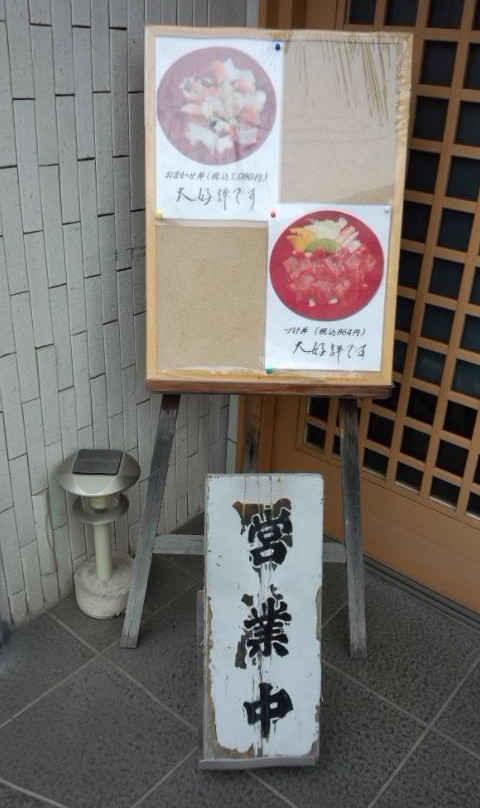 おまかせ丼(税込1,080円)
大好評です
づけ丼(税込864円)
大好評です
営業中